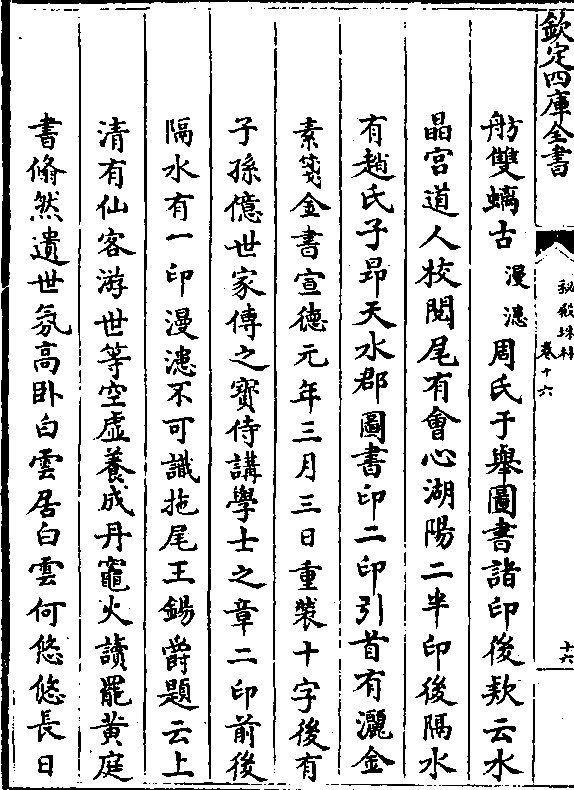 欽定四庫全書
秘殿珠林
卷十六
十六
舫雙螭古漫漶周氏于舉圖書諸印後欵云水
晶宮道人校閱尾有會心湖陽二半印後隔水
有趙氏子昻天水郡圖書印二印引首有灑金
素箋金書宣德元年三月三日重裝十字後有
子孫億世家傳之寳侍講學士之章二印前後
隔水有一印漫漶不可識拖尾王錫爵題云上
清有仙客游世等空虛養成丹竈火讀罷黄庭
書翛然遺世氛高卧白雲居白雲何悠悠長日